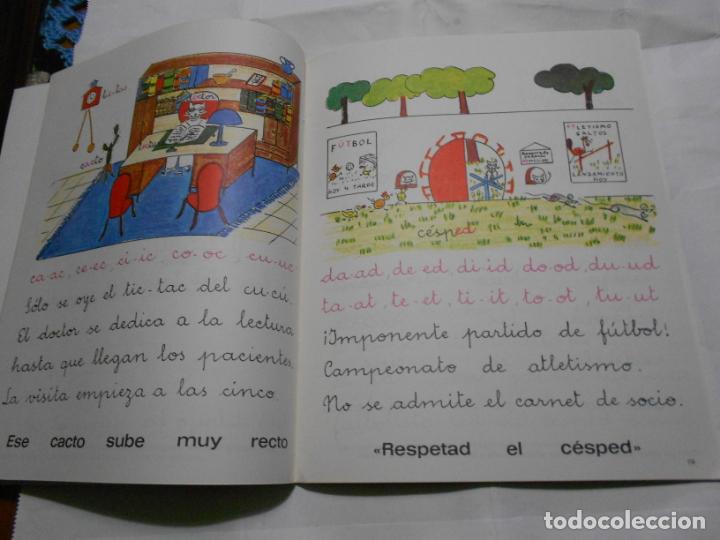 tic-tac
doctor
cacto
ca-ac, ce-ec, ci-ic, co-oc, cu-uc
Sólo se oye el tic-tac del cu-cú.
El doctor se dedica a la lectura
hasta que llegan los pacientes.
La visita empieza a las cinco.
Ese cacto sube muy recto
FÚTBOL
HOY 4 TARDE
ATLETISMO
SALTOS
LANZAMIENTO
HOY
césped
da-ad, de-ed, di-id, do-od, du-ud
ta-at, te-et, ti-it, to-ot, tu-ut
¡Imponente partido de fútbol!
Campeonato de atletismo.
No se admite el carnet de socio.
«Respetad el césped»
todocoleccion.net